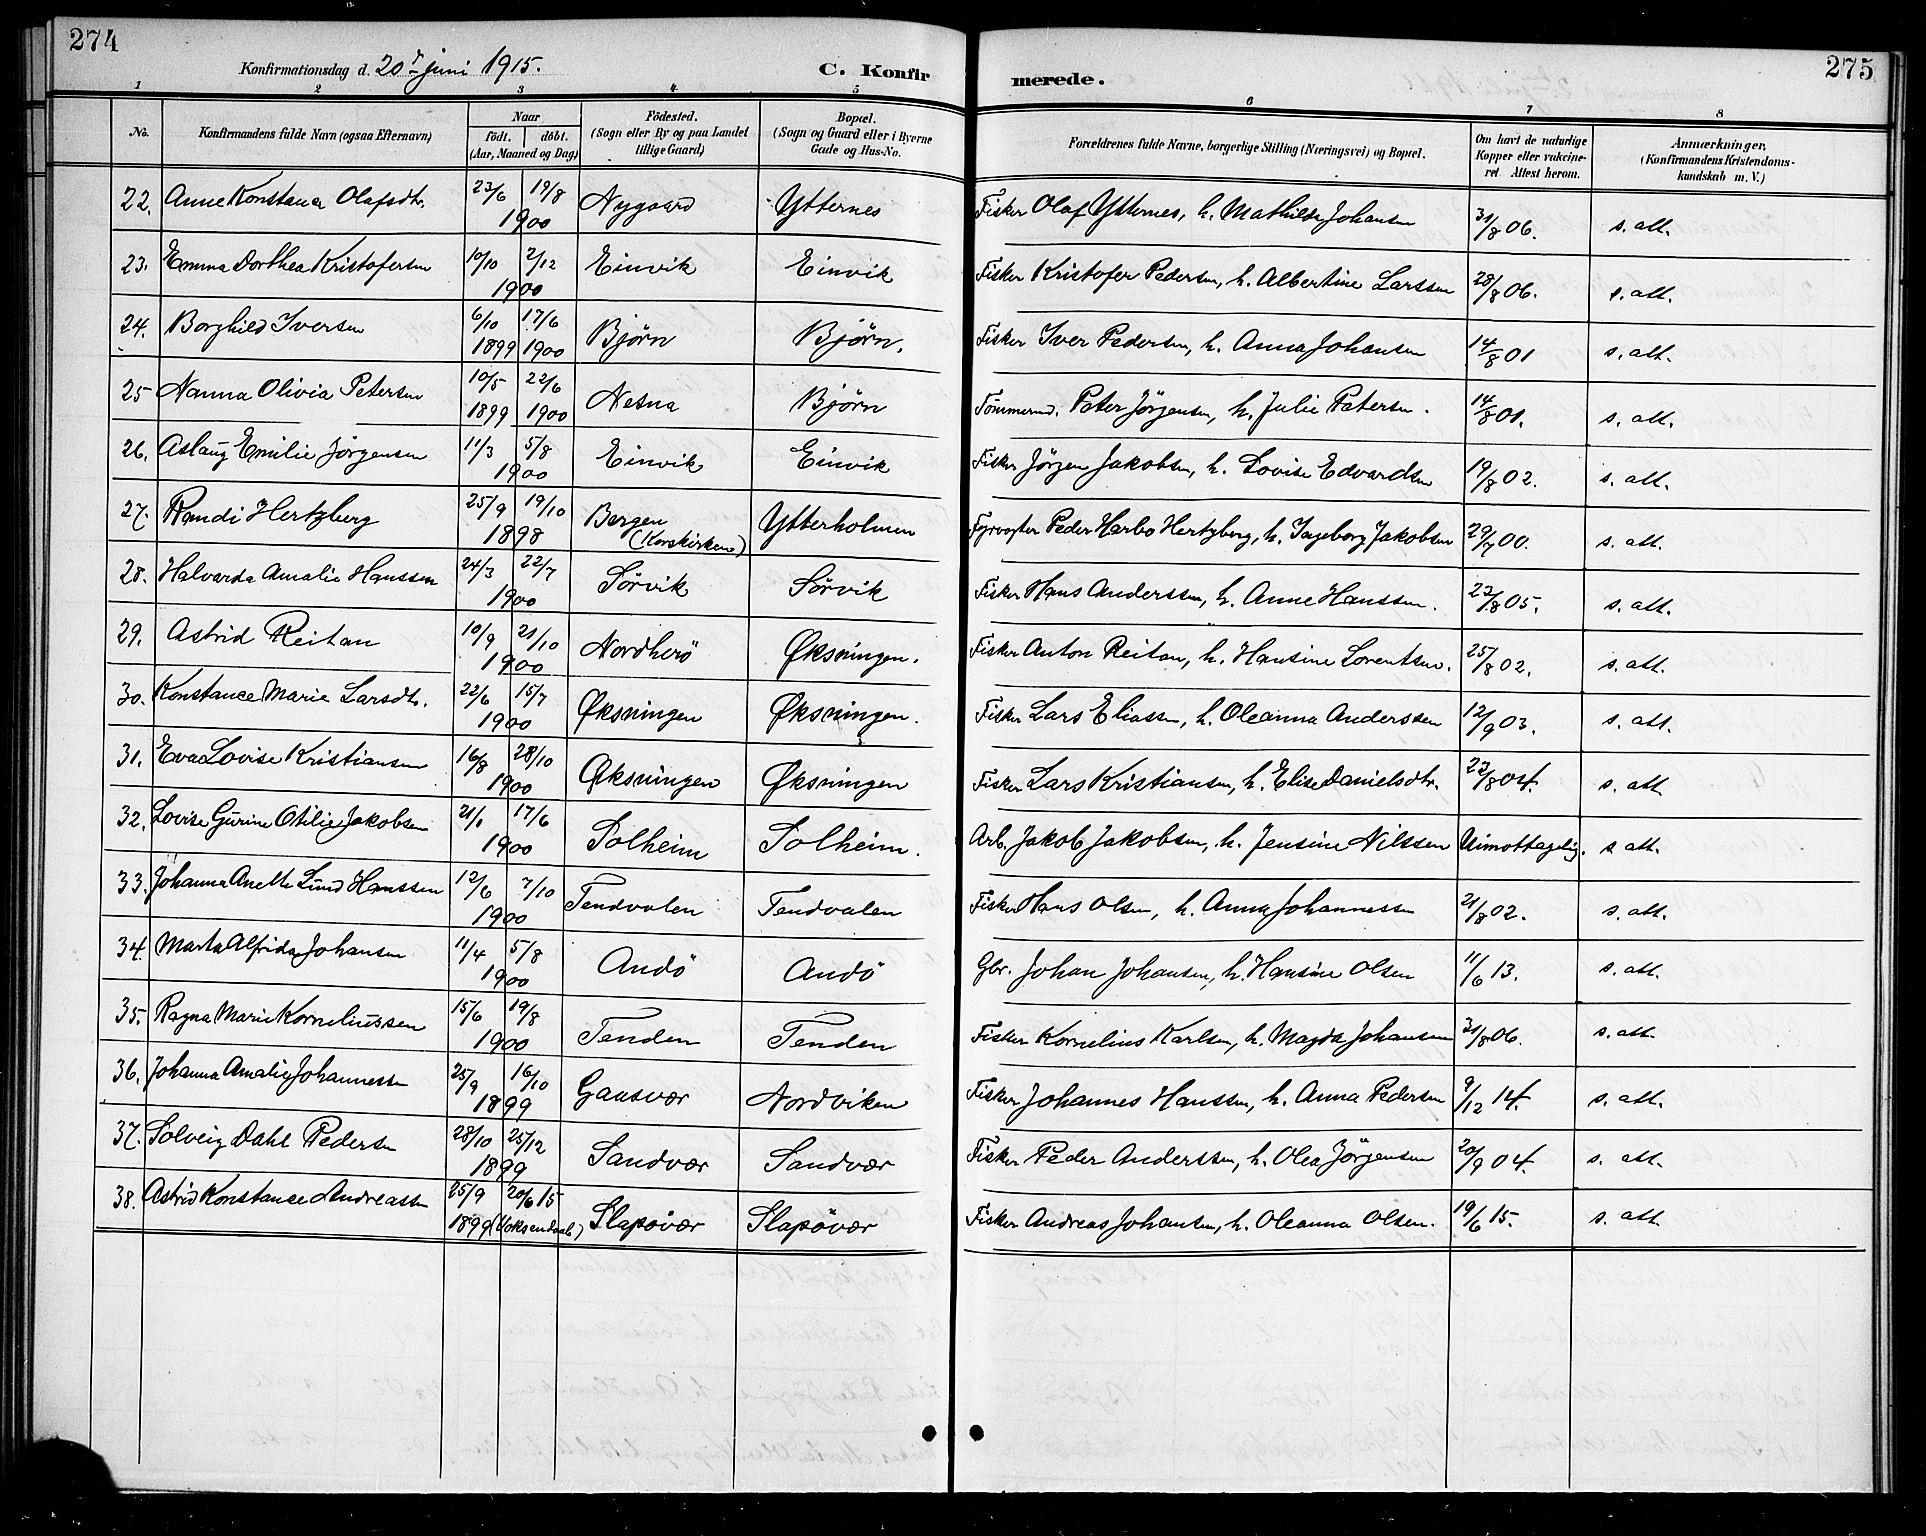 274
275
Konfirmationsdag d. 20de juni 1915.
C. Konfirmerede.
1 2 3 4 5 6 7 8
No. Konfirmandens fulde Navn (ogsaa Efternavn) Naar födt. döbt. (Aar, Maaned og Dag) Födested. (Sogn eller By og paa Landet tillige Gaard) Bopæl. (Sogn og Gaard eller i Byerne Gade og Hus-No. Forældrenes fulde Navne, borgerlige Stilling (Næringsvei) og Bopæl. Om havt de naturlige Kopper eller vakcineret Attest herom. Anmærkninger, (Konfirmandens Kristendomskundskab m. V.)
22. Anne Konstance Olafsdtr. 23/6 19/8 1900 Nygaard Ytternes Fisker Olaf Ytternes, h. Mathilde Johansen 31/8 06. s. att.
23. Emma Dorthea Kristofersen 10/10 2/12 1900 Einvik Einvik Fisker Kristofer Pedersen, h. Albertine Larssen 28/8 06. s. att.
24. Borghild Iversen 6/10 1899 17/6 1900 Bjørn Bjørn. Fisker Iver Pedersen, h. Anna Johansen 14/8 01 s. att.
25 Nanna Olivia Petersen 10/5 1899 22/6 1900 Nesna Bjørn Tömmermd. Peter Jörgensen, h. Julie Petersen. 14/8 01. s. att.
26. Aslaug Emilie Jörgensen 11/3 5/8 1900 Einvik Einvik Fisker Jörgen Jakobsen, h. Lovise Edvardsen 19/8 02. s. att.
27. Randi Hertzberg 25/9 19/10 1898 Bergen (Korskirken) Ytterholmen Fyrvogter Peder Harbo Hertzberg, h. Ingeborg Jakobsen 27/7 00. s. att.
28. Halvarda Amalie Hanssen 24/3 22/7 1900 Sörvik Sörvik Fisker Hans Anderssen, h. Anne Hanssen. 23/8 05. s. att.
29. Astrid Reitan 10/9 21/10 1900 Nordherö Øksningen. Fisker Anton Reitan, h. Hansine Lorentsen. 25/8 02. s. att.
30. Konstance Marie Larsdtr. 22/6 15/7 1900 Øksningen Øksningen. Fisker Lars Eliassen, h. Oleanna Anderssen 12/9 03. s. att.
31. Eva Lovise Kristiansen 16/8 28/10 1900 Øksningen Øksningen Fisker Lars Kristiansen, h. Elise Danielsdtr. 23/8 04. s. att.
32. Lovise Gurine Otilie Jakobsen 21/1 17/6 1900 Solheim Solheim. Arb. Jakob Jakobsen, h. Jensine Nilssen Uimottagelig. s att.
33. Johanna Anette Lund Hanssen 12/6 7/10 1900 Tendvalen Tendvalen Fisker Hans Olsen, h. Anna Johannessen 21/8 02. s. att.
34. Marta Alfrida Johansen 11/4 5/8 1900 Andö Andö Gbr. Johan Johansen, h. Hansine Olsen 11/6 13. s. att.
35. Ragna Marie Korneliussen 15/6 19/8 1900 Tenden Tenden Fisker Kornelius Karlsen, h. Magda Johansen 31/8 06. s. att.
36. Johanna Amalie Johannessen 25/9 16/10 1899 Gaasvær Nordviken Fisker Johannes Hanssen, h. Anna Pedersen 9/12 14. s. att.
37. Solveig Dahl Pedersen 28/10 25/12 1899 Sandvær Sandvær Fisker Peder Anderssen, h. Olea Jörgensen 20/9 04. s. att.
38. Astrid Konstance Andreassen 25/9 1899 20/6 15 (Voksendaab) Slapövær Slapövær Fisker Andreas Johansen, h. Oleanna Olsen. 19/6 15. s. att.